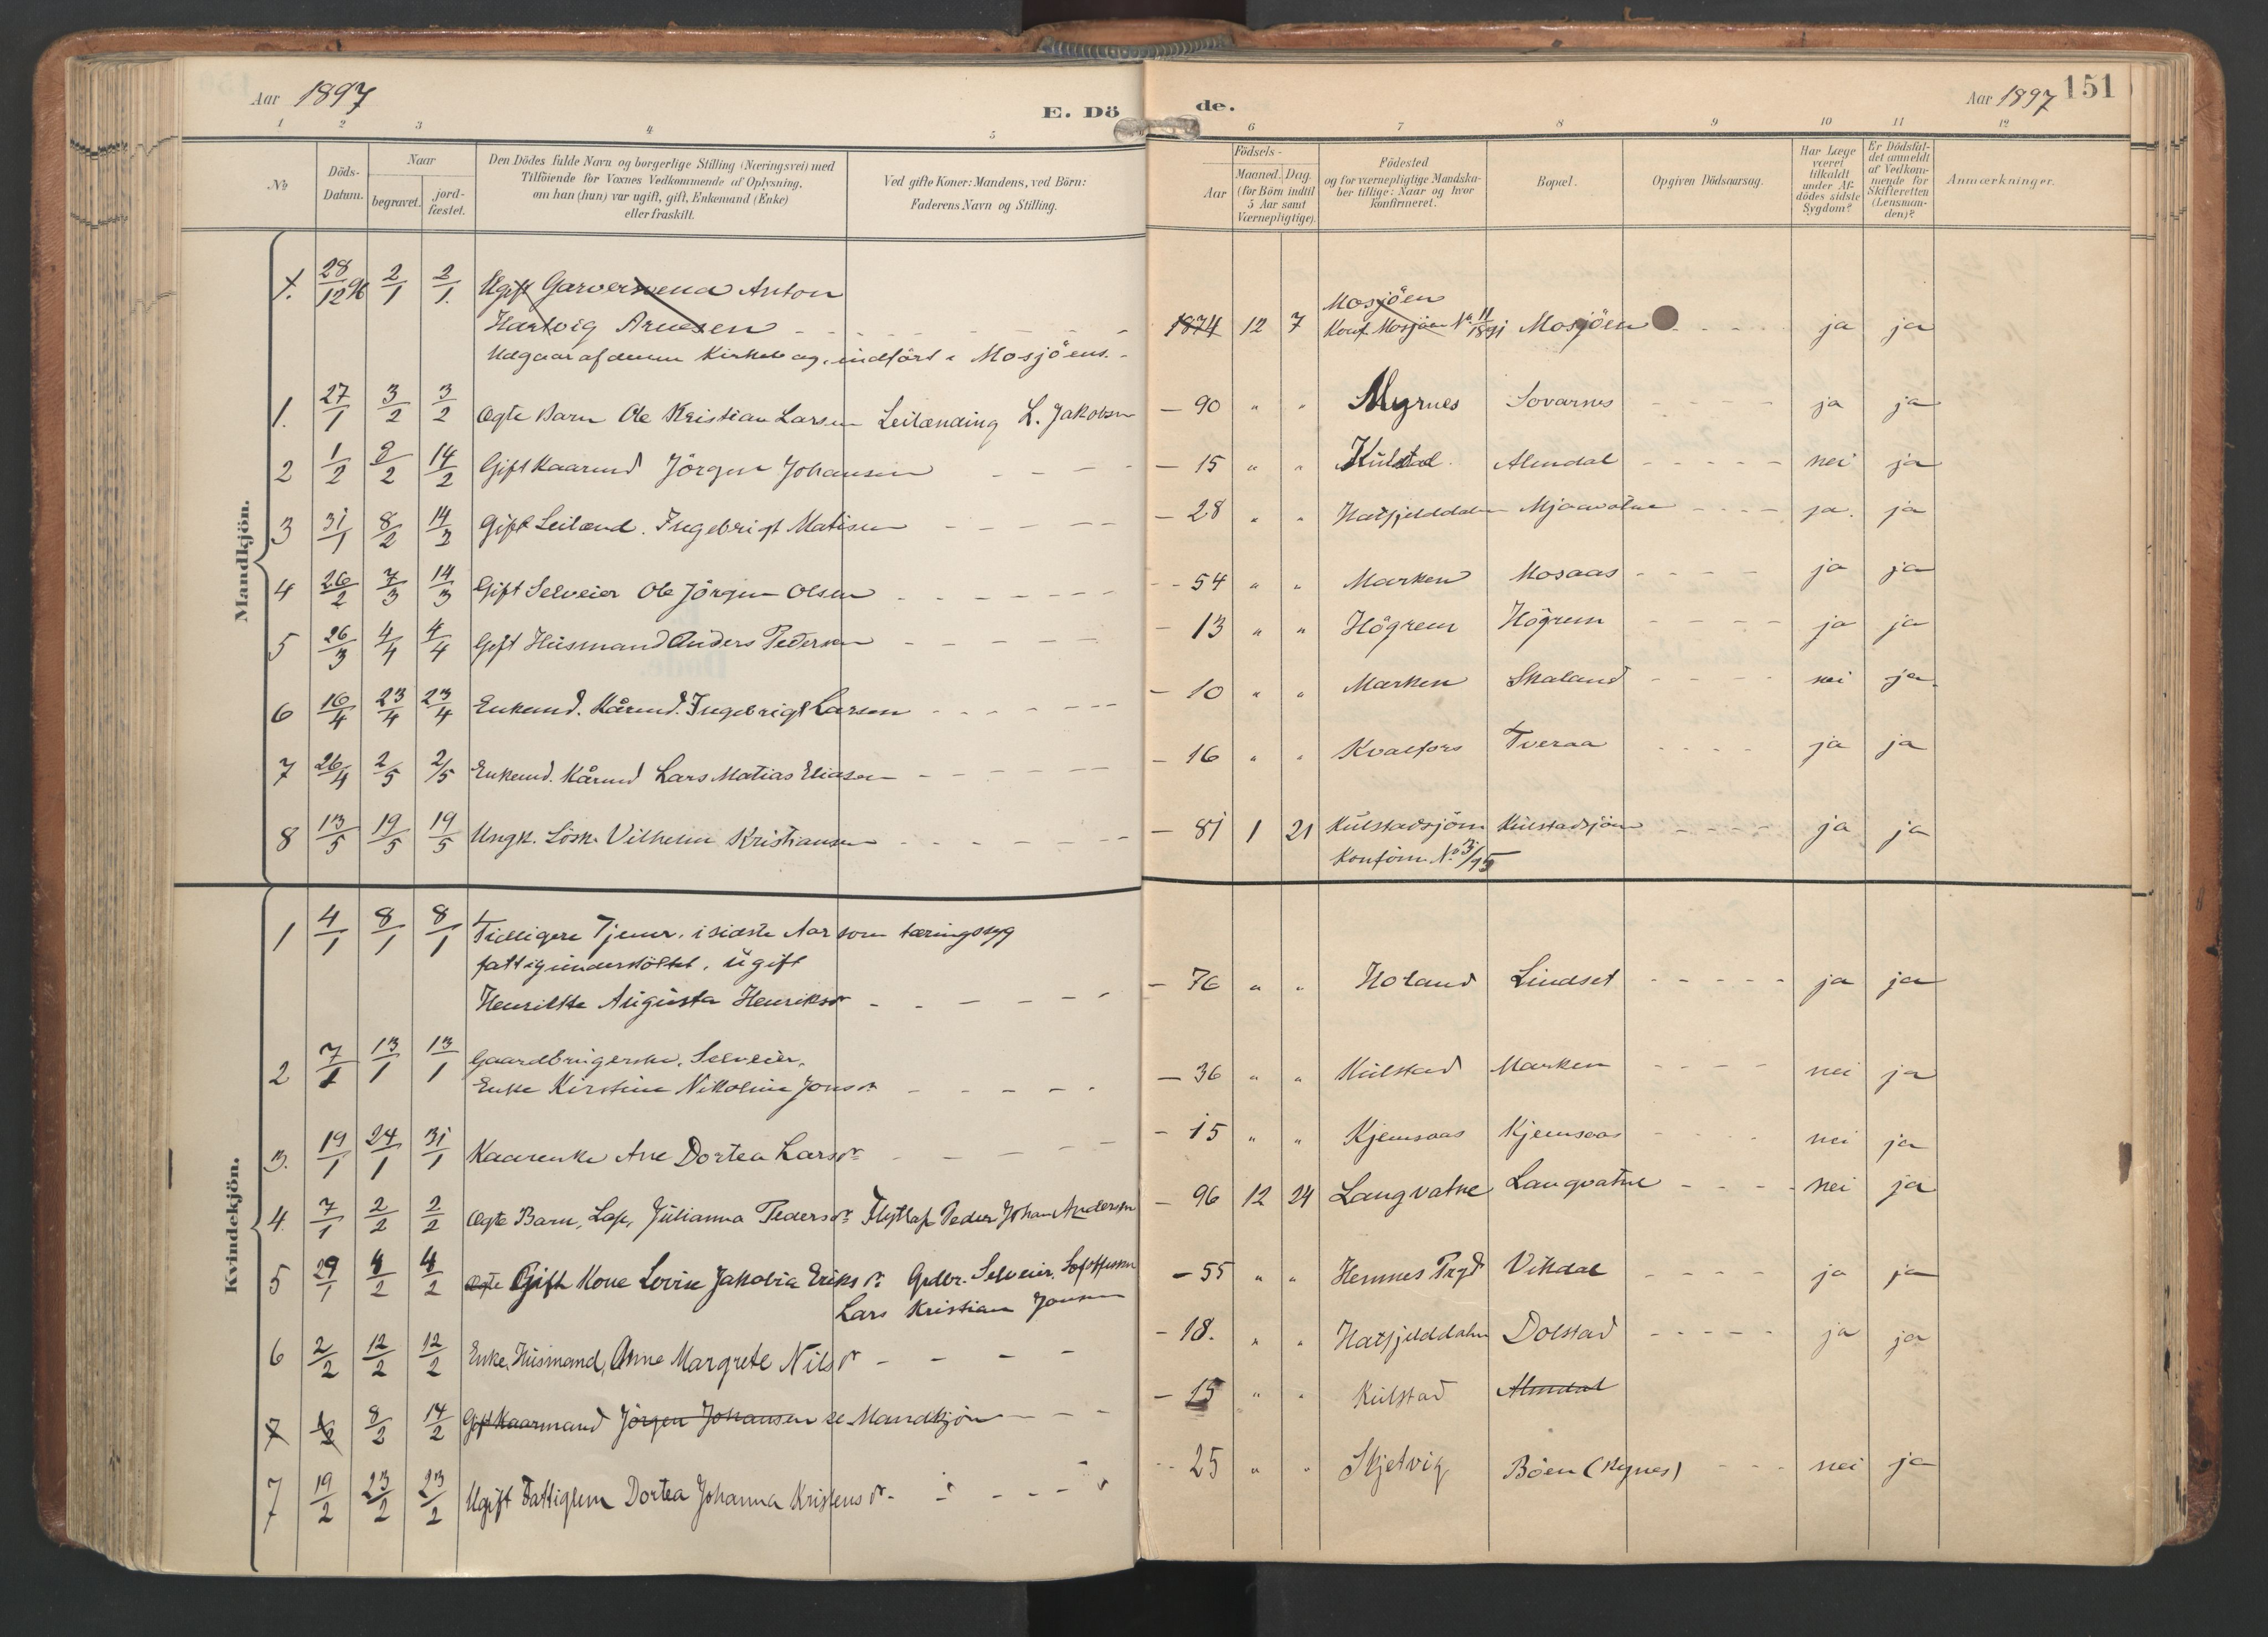 Aar 1897
E. Dö de.
Aar 1897 151
1 2 3 4 5 6 7 8 9 10 11 12
No
Döds-Datum.
Naar
begravet.
jord-fæstet.
Den Dödes fulde Navn og borgerlige Stilling (Næringsvei) med
Tilföiende for Voxnes Vedkommende af Oplysning,
om han (hun) var ugift, gift, Enkemand (Enke)
eller fraskilt.
Ved gifte Koner: Mandens, ved Börn:
Faderens Navn og Stilling.
Födsels-
Aar
Maaned. Dag.
(for Börn indtil
5 Aar samt
Værnepligtige).
Födested
og for værnepligtige Mandska-
ber tillige: Naar og hvor
konfirmeret.
Bopæl.
Opgiven Dödsaarsag.
Har Læge
været
tilkaldt
under Af-
dödes sidste
Sygdom?
Er Dödsfal-
det anmeldt
af Vedkom-
mende for
Skifteretten
(Lensman-
den)?
Anmærkninger.
Mandkjön.
1. 28/12 96 2/1 2/1. Ugift Garversvend Anton Mosjöen
Hartvig Arnesen 1874 12 7 Konf. Mosjöen No 11/1891 Mosjöen ja ja
Udgaar af denne Kirkebog, indfört i Mosjöens.
1. 27/1 3/2 3/2 Ægte Barn Ole Kristian Larsen Leilænding L. Jakobsen - 90 " " Myrnes Sovarnes ja ja
2 1/2 8/2 14/2 Gift Kaarmd Jörgen Johansen - 15 " " Kulstad. Almdal nei ja
3 31/1 8/2 14/2 Gift Leilænd. Ingebrigt Matisen - 28 " " Hatfjelddalen Mjaavatne ja. ja
4 26/2 7/3 14/3 Gift Selveier Ole Jörgen Olsen - 54 " " Marken Mosaas ja ja
5 26/3 4/4 4/4 Gift Husmand Anders Pedersen - 13 " " Högrem Högrem ja ja
6 16/4 23/4 23/4 Enkemd. Kårmd. Ingebrigt Larsen - 10 " " Marken Skaland nei ja
7 26/4 2/5 2/5 Enkemd. Kårmd Lars Matias Eliasen - 16 " " Kvalfors Tveraa ja ja
8 13/5 19/5 19/5 Ungk. Lösk. Vilhelm Kristiansen - 81 1 21 Kulstadsjöen Kulstadsjöen ja ja
Konfirm. No 3/95
Kvindekjön.
1 4/1 8/1 8/1 Tidligere Tjener. i sidste Aar som tæringssyg
fattigunderstöttet. ugift
Henrikke Augusta Henriksdr - 76 " " Holand Lindset ja ja
2 7/1 13/1 13/1 Gaardbrugerske. Selveier.
Enke Kirstine Nikoline Jonsdr - 36 " " Kulstad Marken nei ja
3. 19/1 24/1 31/1 Kaarenke Ane Dortea Larsdr - 15 " " Kjemsaas Kjemsaas nei ja
4. 7/1 2/2 2/2 Ægte Barn, Lap, Julianna Pedersdr Flytlap Peder Johan Andersen - 96 12 24 Langvatne Langvatne nei ja
5 29/1 4/2 4/2 Ægte Gift Kone Lovise Jakobia Eriksdr Grdbr. Selveier.
Lars Kristian Jonsen - 55 " " Hemnes Prgd Vikdal ja ja
6 2/2 12/2 12/2 Enke, Husmand, Anne Margrete Nilsdr - 18. " " Hatfjelddalen Dolstad ja ja
7 1/2 8/2 14/2 Gift Kaarmand Jörgen Johansen se Mandkjön - 15 " " Kulstad Almdal
7 19/2 23/2 23/2 Ugift Fattiglem Dortea Johanna Kristensdr - 25 " " Skjetvig Böen (Rynes) nei ja